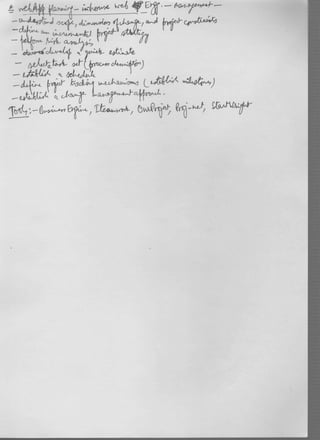 webApp planning - inhouse web Engg. - management -
- understand scope, dimensions of change, and project constraints
- define an incremental project strategy
- perform risk analysis
- develop a quick estimate
- select task set (process description)
- establish a schedule
- define project tracking mechanisms (establish milestones)
- establish a change management approach.
Tools:- Business Engine, Iteamwork, OurProject, Proj-net, StartWright